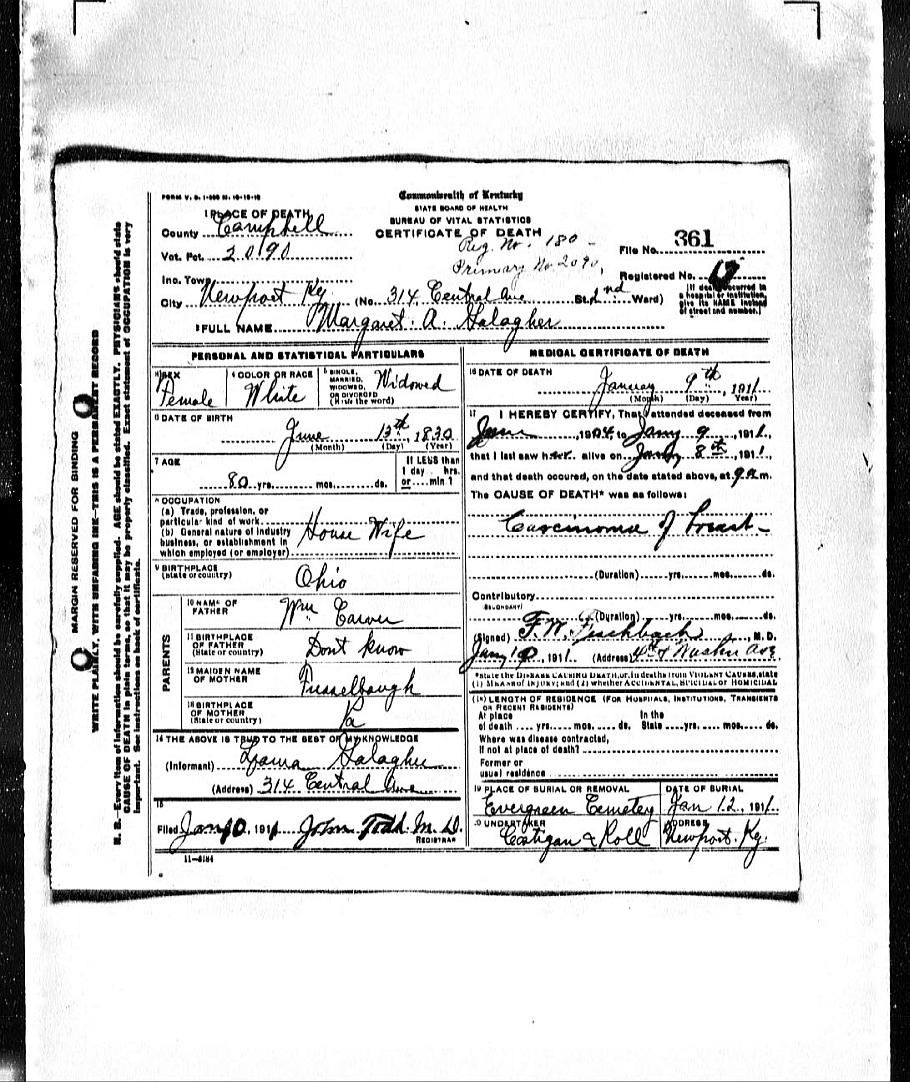 FORM V. S. 1-
Commonwealth of Kentucky
STATE BOARD OF HEALTH
BUREAU OF VITAL STATISTICS
CERTIFICATE OF DEATH
1 PLACE OF DEATH
County Campbell
Vot. Pct. 2090
Inc. Town
City Newport Ky (No. 314 Central Ave St. 2nd Ward)
Reg. No. 180 -
Primary No 2090,
File No. 361
Registered No.
[If death occurred in a hospital or institution, give its NAME instead of street and number.]
2 FULL NAME Margaret. A. Galagher
PERSONAL AND STATISTICAL PARTICULARS
3 SEX Female
4 COLOR OR RACE White
5 SINGLE, MARRIED, WIDOWED, OR DIVORCED (Write the word) Widowed
6 DATE OF BIRTH
June 13th, 1830
(Month) (Day) (Year)
7 AGE
80 yrs. mos. ds.
If LESS than 1 day hrs. or min ?
8 OCCUPATION
(a) Trade, profession, or particular kind of work
(b) General nature of industry business, or establishment in which employed (or employer)
House Wife
9 BIRTHPLACE
(State or country)
Ohio
PARENTS
10 NAME OF FATHER Wm Carver
11 BIRTHPLACE OF FATHER (State or country) Dont know
12 MAIDEN NAME OF MOTHER Fusselbaugh
13 BIRTHPLACE OF MOTHER (State or country) Pa
14 THE ABOVE IS TRUE TO THE BEST OF MY KNOWLEDGE
(Informant) Galagher
(Address) 314 Central Ave
15
Filed Jan 10, 1911 John Todd M. D.
REGISTRAR
11-6184
MEDICAL CERTIFICATE OF DEATH
16 DATE OF DEATH
January 9th, 1911
(Month) (Day) (Year)
17 I HEREBY CERTIFY, That I attended deceased from
Jan, 1904, to Jany 9, 1911,
that I last saw her alive on Jany 8th, 1911,
and that death occured, on the date stated above, at 9 a m.
The CAUSE OF DEATH* was as follows:
Carcinoma of breast
(Duration) yrs. mos. ds.
Contributory
SECONDARY
(Duration) yrs. mos. ds.
(Signed) F. W. Fischbach, M. D.
Jany 10, 1911 (Address) 4th & Washn Ave.
*State the DISEASE CAUSING DEATH, or, in deaths from VIOLENT CAUSES, state (1) MEANS of INJURY; and (2) whether ACCIDENTAL, SUICIDAL or HOMICIDAL
18 LENGTH OF RESIDENCE (FOR HOSPITALS, INSTITUTIONS, TRANSIENTS OR RECENT RESIDENTS)
At place of death yrs. mos. ds. In the State yrs. mos. ds.
Where was disease contracted, If not at place of death?
Former or usual residence
19 PLACE OF BURIAL OR REMOVAL
Evergreen Cemetery
DATE OF BURIAL
Jan 12, 1911
20 UNDERTAKER
Costigan & Roll
ADDRESS
Newport. Ky.
MARGIN RESERVED FOR BINDING
WRITE PLAINLY, WITH UNFADING INK—THIS IS A PERMANENT RECORD
N. B.—Every item of information should be carefully supplied. AGE should be stated EXACTLY. PHYSICIANS should state
CAUSE OF DEATH in plain terms, so that it may be properly classified. Exact statement of OCCUPATION is very
important. See instructions on back of certificate.